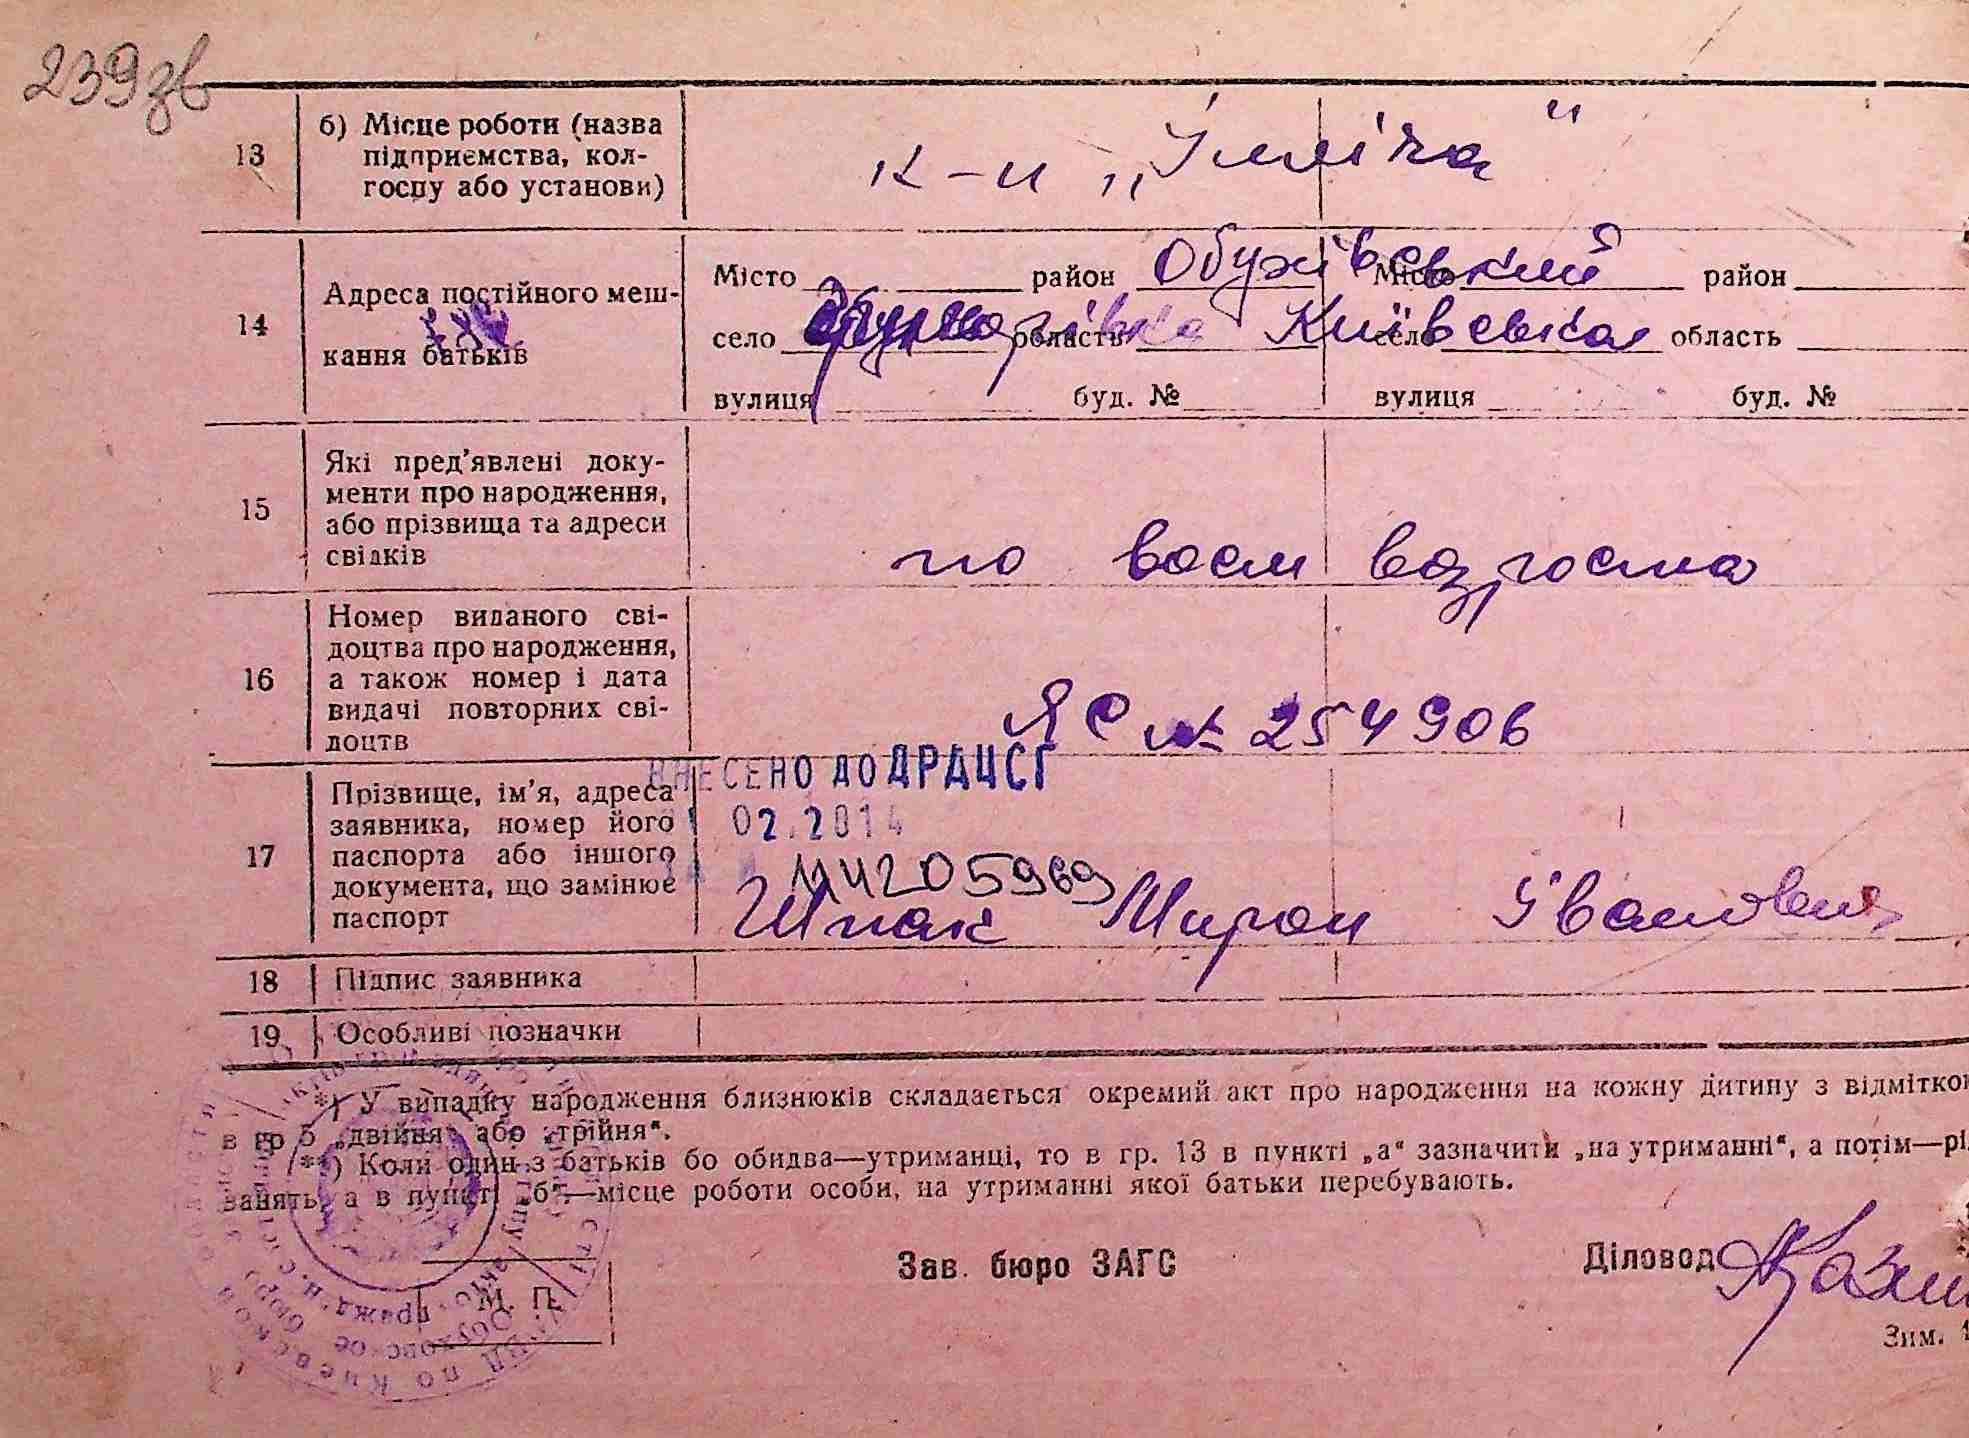 239зв
13 б) Місце роботи (назва
підприємства, кол-
госпу або установи)
к-п „Ілліча"
14 Адреса постійного меш-
кання батьків
Місто район Обухівський Місто район
село область Київська село область
вулиця буд. № вулиця буд. №
15 Які пред'явлені доку-
менти про народження,
або прізвища та адреси
свідків
по возрасна
16 Номер виданого сві-
доцтва про народження,
а також номер і дата
видачі повторних сві-
доцтв
ЯС № 254906
ВНЕСЕНО ДО ДРАЦСГ
02.2014
17 Прізвище, ім'я, адреса
заявника, номер його
паспорта або іншого
документа, що замінює
паспорт
Шпак Мирон Іванович
18 Підпис заявника
19 Особливі позначки
*) У випадку народження близнюків складається окремий акт про народження на кожну дитину з відмітко
в гр 5 „двійня" або „трійня".
**) Коли один з батьків бо обидва—утриманці, то в гр. 13 в пункті „а" зазначити „на утриманні", а потім—рі
занять, а в пункті „б"—місце роботи особи, на утриманні якої батьки перебувають.
Зав. бюро ЗАГС
Діловод
М. П.
Зим. 1